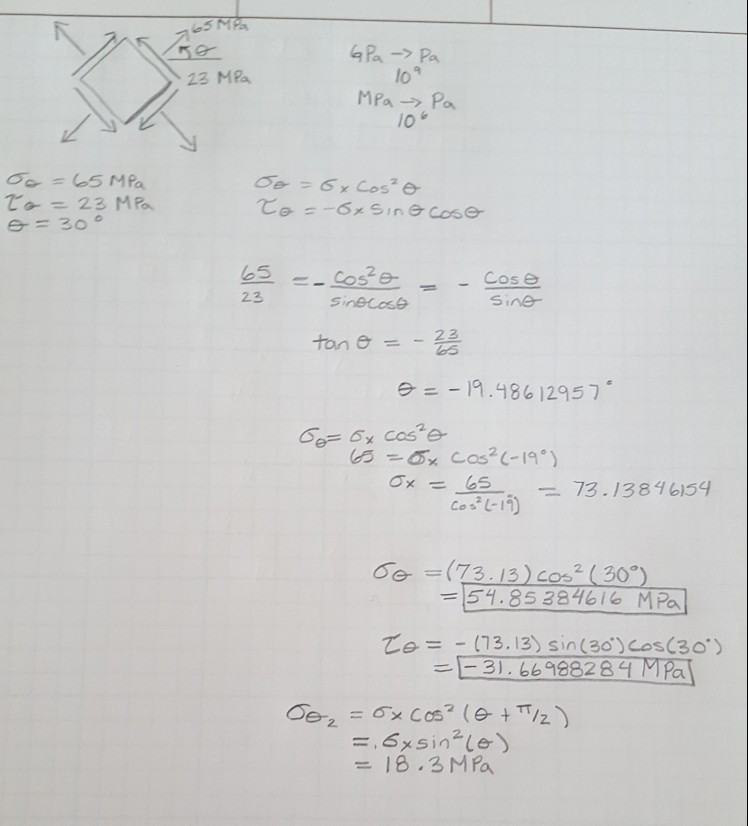 65 MPa
θ
23 MPa
GPa → Pa
10⁹
MPa → Pa
10⁶
σθ = 65 MPa
τθ = 23 MPa
θ = 30°
σθ = σx cos²θ
τθ = -σx sinθ cosθ
65/23 = - cos²θ/sinθcosθ = - cosθ/sinθ
tan θ = - 23/65
θ = -19.48612957°
σθ = σx cos²θ
65 = σx cos²(-19°)
σx = 65/cos²(-19°) = 73.13846154
σθ = (73.13) cos²(30°)
= 54.85384616 MPa
τθ = -(73.13) sin(30°) cos(30°)
= -31.66988284 MPa
σθ₂ = σx cos²(θ + π/2)
= σx sin²(θ)
= 18.3 MPa